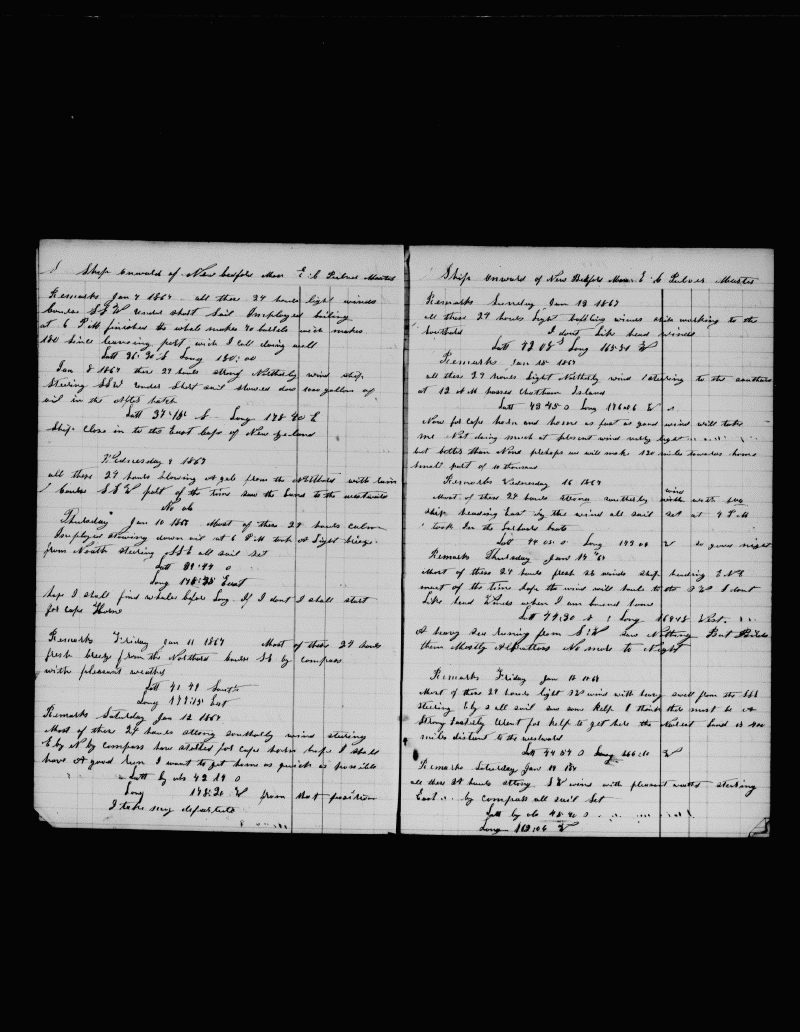 Ship Onward of New Bedford Mass E. C. Pulver Master
Remarks Jan 7 1867 all these 24 hours light winds
Course S S W under short sail Employed boiling
at 6 P M finished the whale makes 70 barrels wich makes
180 since leaveing port, wich I call doing well
Latt 36:20 S Long 180:00
Jan 8 1867 these 24 hours strong Netherly wind ship
Steering SSW under short sail stowed dow 1000 gallons of
oil in the after hatch
Latt 37:18 S Long 178:40 E
Ship Close in to the East Cape of New Zealand
Wednesday 9 1867
all these 24 hours blowing A gale from the with rain
Course S S W part of the time saw the Land to the westward
No obs
Thursday Jan 10 1867 Most of these 24 hours calm
Employed stowing down oil at 6 P M took A Light brieze
from North steering SSE all sail set
Latt 39:44 S
Long 178:38 East
hope I shall find whales before Long. If I dont I shall start
for cape Horne
Remarks Friday Jan 11 1867 Most of these 24 hours
fresh breeze from the Northerd Course SE by compass
with pleasant weather
Latt 41 49 South
Long 179:15 East
Remarks Saturday Jan 12 1867
Most of these 24 hours strong southerly wind steering
E by N by compass have started for Cape horne hope I shall
have A good run I want to get home as quick as possible
Latt by obs 42 19 S
Long 178:30 W from that position
I take my departure
Ship Onward of New Bedford Mass E. C. Pulver Master
Remarks Sunday Jan 13 1867
all these 24 hours light baffling winds ship working to the
Southerd I dont Like head winds
Latt 43 08 S Long 168:31 W
Remarks Jan 15 1867
all these 24 hours Light Netherly wind steering to the southerd
at 12 A M passed Chatham Island
Latt 43 45 S Long 176:06 W
Now for cape horn and home as fast as good wind will take
me Not doing much at present wind verry light
but better than None perhaps we will make 120 miles towards home
small part of 10 thousand
Remarks Wednesday 16 1867
Most of these 24 hours strong southerly wind with
ship heading East by the wind all sail set at 4 P M
took In the Larbord boats
Latt 44 03 S Long W so good night
Remarks Thursday Jan 17 67
Most of these 24 hours fresh SE winds ship heading E N E
most of the time hope the wind will haul to the S W I dont
Like head Winds when I am bound home
Latt 44:30 S Long 169:18 West
A heavy sea runing from S W saw Nothing But Birds
them Mostly Albatross No more to Night
Remarks Friday Jan 18 1867
Most of these 24 hours light SW wind with heavy swell from the SSE
steering E by S all sail saw some Kelp I think there must be A
strong Easterly Current for kelp to get here the nearest Land is 400
miles distant to the westward
Latt 44 54 S Long 166:10 W
Remarks Saturday Jan 19 1867
all these 24 hours strong S W wind with pleasant weather steering
East by compass all sail set
Latt by obs 45:40 S
Long 163:06 W